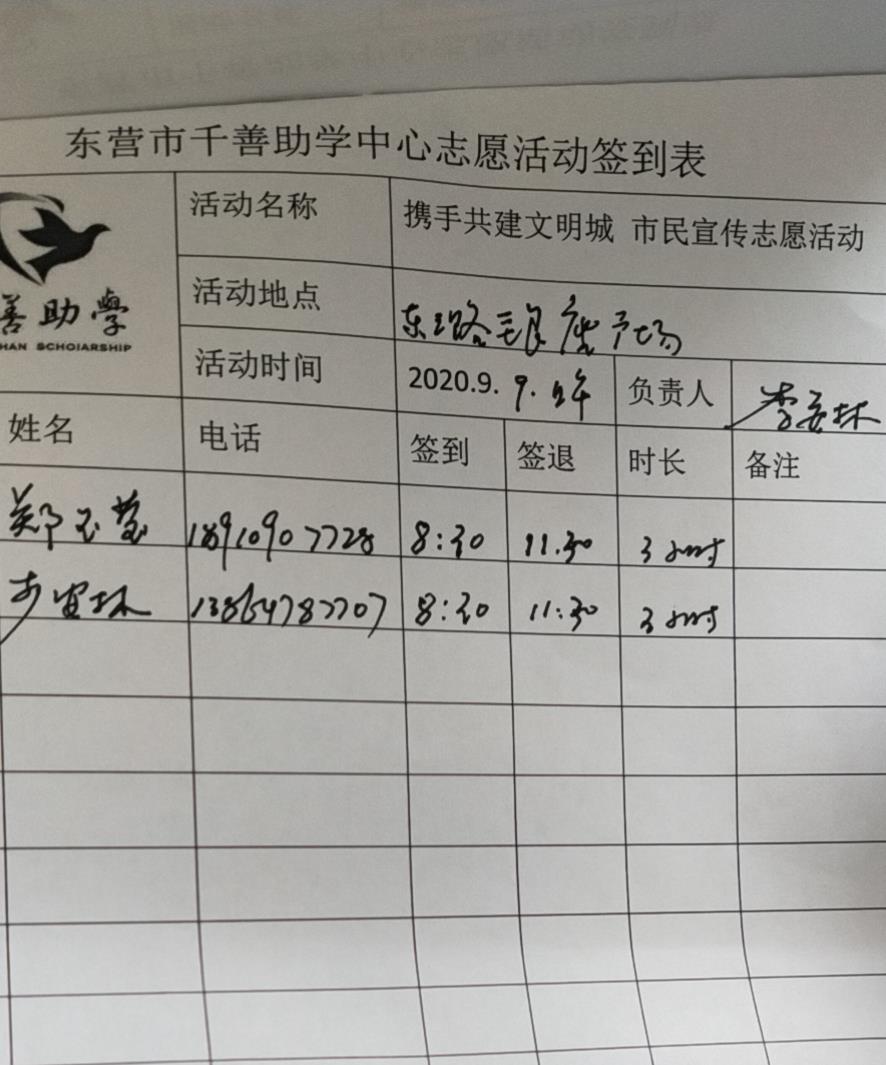 东营市千善助学中心志愿活动签到表
活动名称 携手共建文明城 市民宣传志愿活动
善助学
HAN SCHOIARSHIP
活动地点 东三路
活动时间 2020.9.9. 负责人
姓名 电话 签到 签退 时长 备注
郑玉莹 18910907728 8:30 11.30 3小时
13864787707 8:30 11:30 3小时